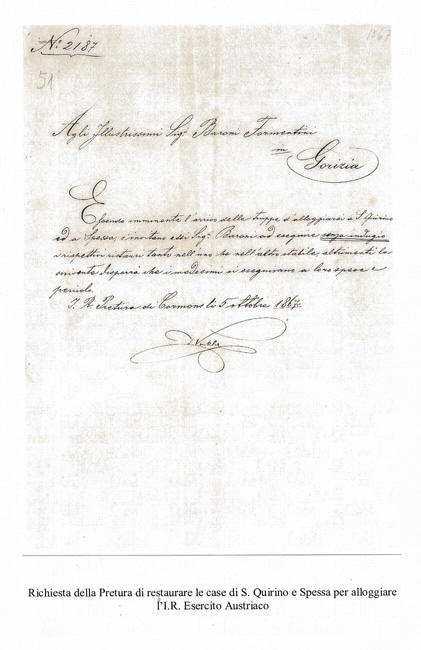 No 2187
1867
51
Agli Illustrissimi Sigri Baroni Formentini
in
Gorizia
Essendo imminente l'arrivo delle truppe d'alloggiarsi a S. Quirino
ed a Spessa, s'invitano essi Sigri Baroni ad eseguire senza indugio
i rispettivi restauri tanto nell'uno che nell'altro stabile, altrimenti la
scrivente disporrà che i medesimi si eseguiranno a loro spese e
pericolo.
I. R. Pretura di Cormons li 5 ottobre 1867.
Richiesta della Pretura di restaurare le case di S. Quirino e Spessa per alloggiare
l'I.R. Esercito Austriaco